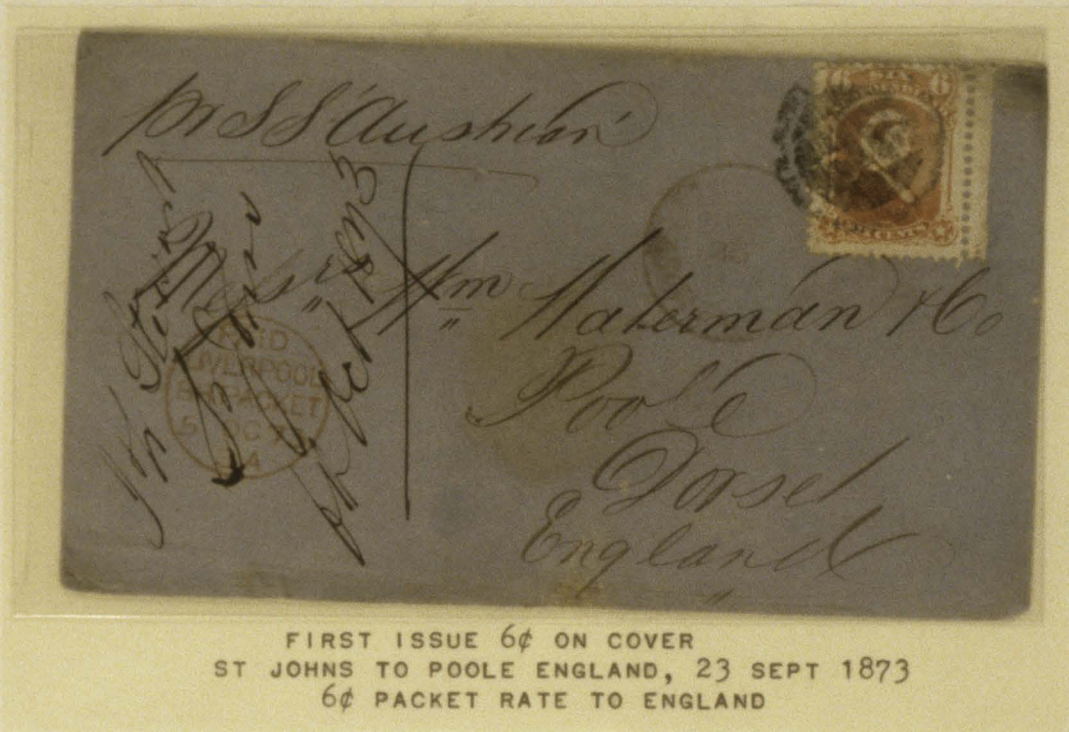 pr S S "Austrian"
Messrs Wm Waterman & Co
Poole
Dorset
England
SIX
6 6
CENTS
PAID
LIVERPOOL
PACKET
5 OC 73
St Johns
1873
FIRST ISSUE 6¢ ON COVER
ST JOHNS TO POOLE ENGLAND, 23 SEPT 1873
6¢ PACKET RATE TO ENGLAND